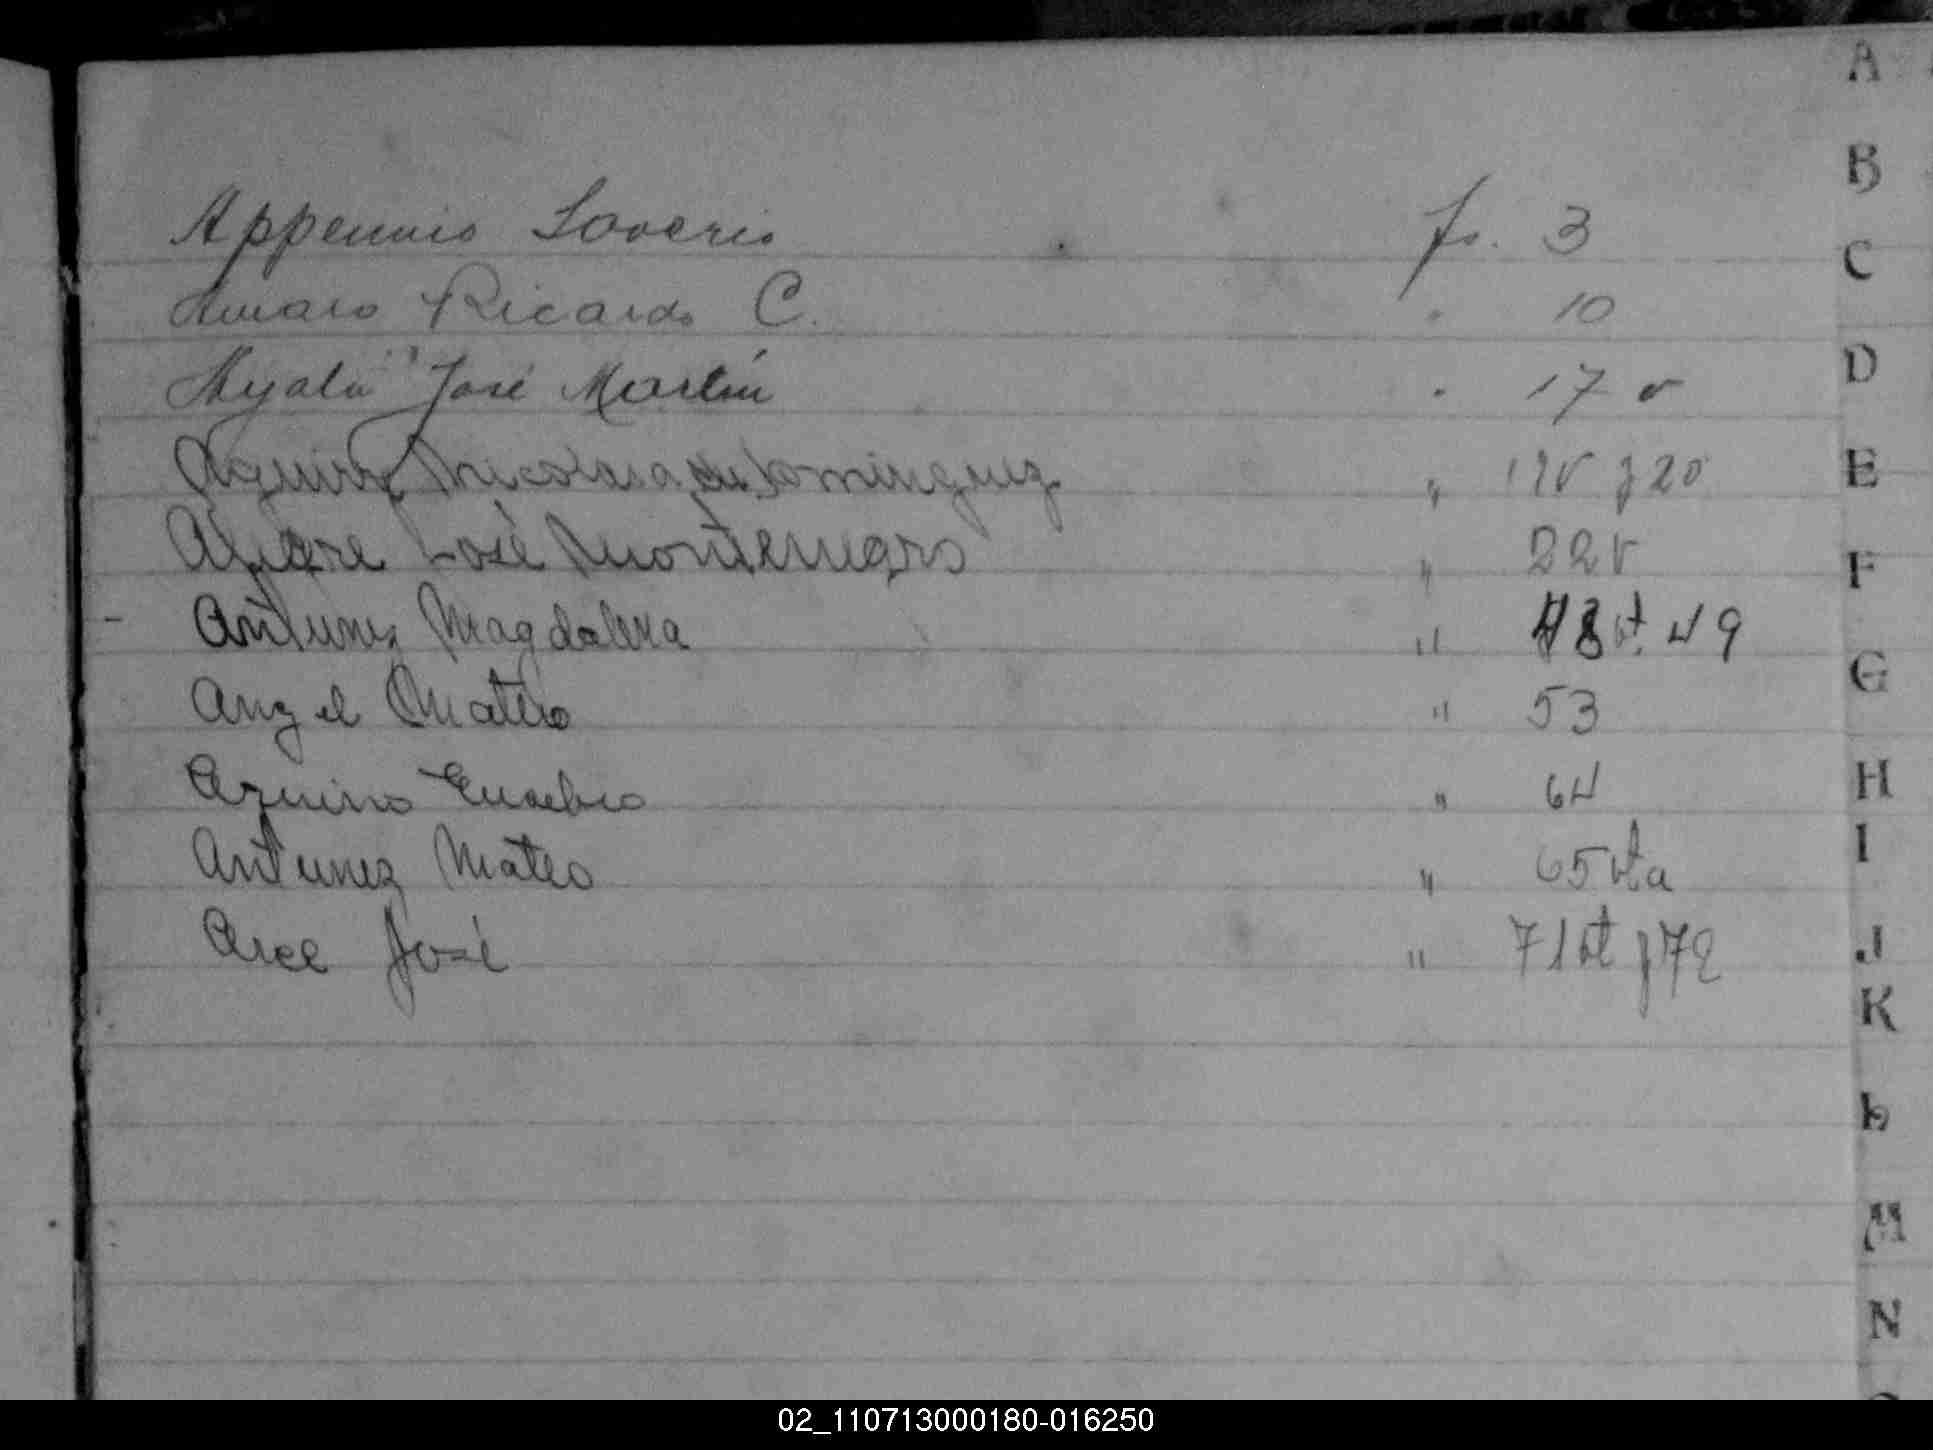 Appennio Saverio fs. 3
Amaro Ricardo C. " 10
Ayala José Martín " 17 v
Aguirre Nicolasa de Dominguez " 19v y 20
Alegre José Montenegro " 22v
Antunez Magdalena " 48 vt. 49
Angel Mateo " 53
Aquino Eusebio " 64
Antunez Mateo " 65 vta
Arce José " 71 vt y 72
A
B
C
D
E
F
G
H
I
J
K
L
M
N
02_110713000180-016250